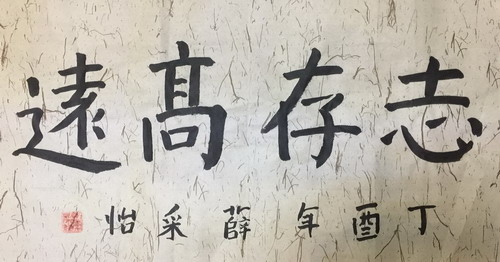 志存高遠
丁酉年薛采怡